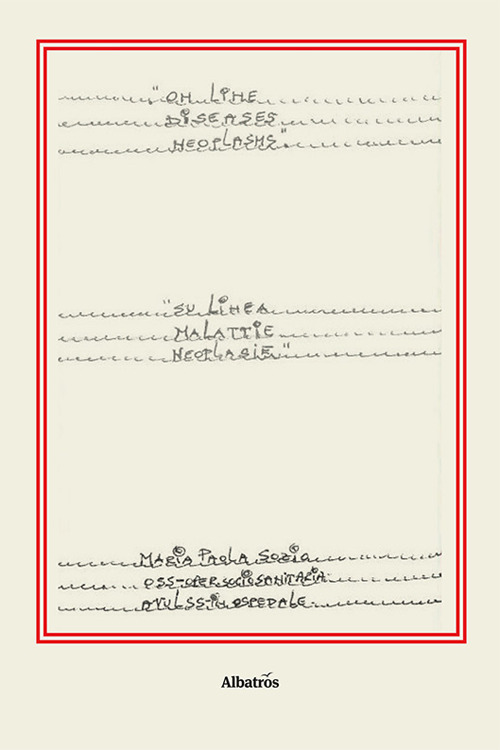 "ON LINE
DISEASES
NEOPLASMS"
"SU LINEA
MALATTIE
NEOPLASIE"
MARIA PAOLA SOZIO
OSS-OPER.SOCIOSANITARIA
AVULSS-IN OSPEDALE
Albatros